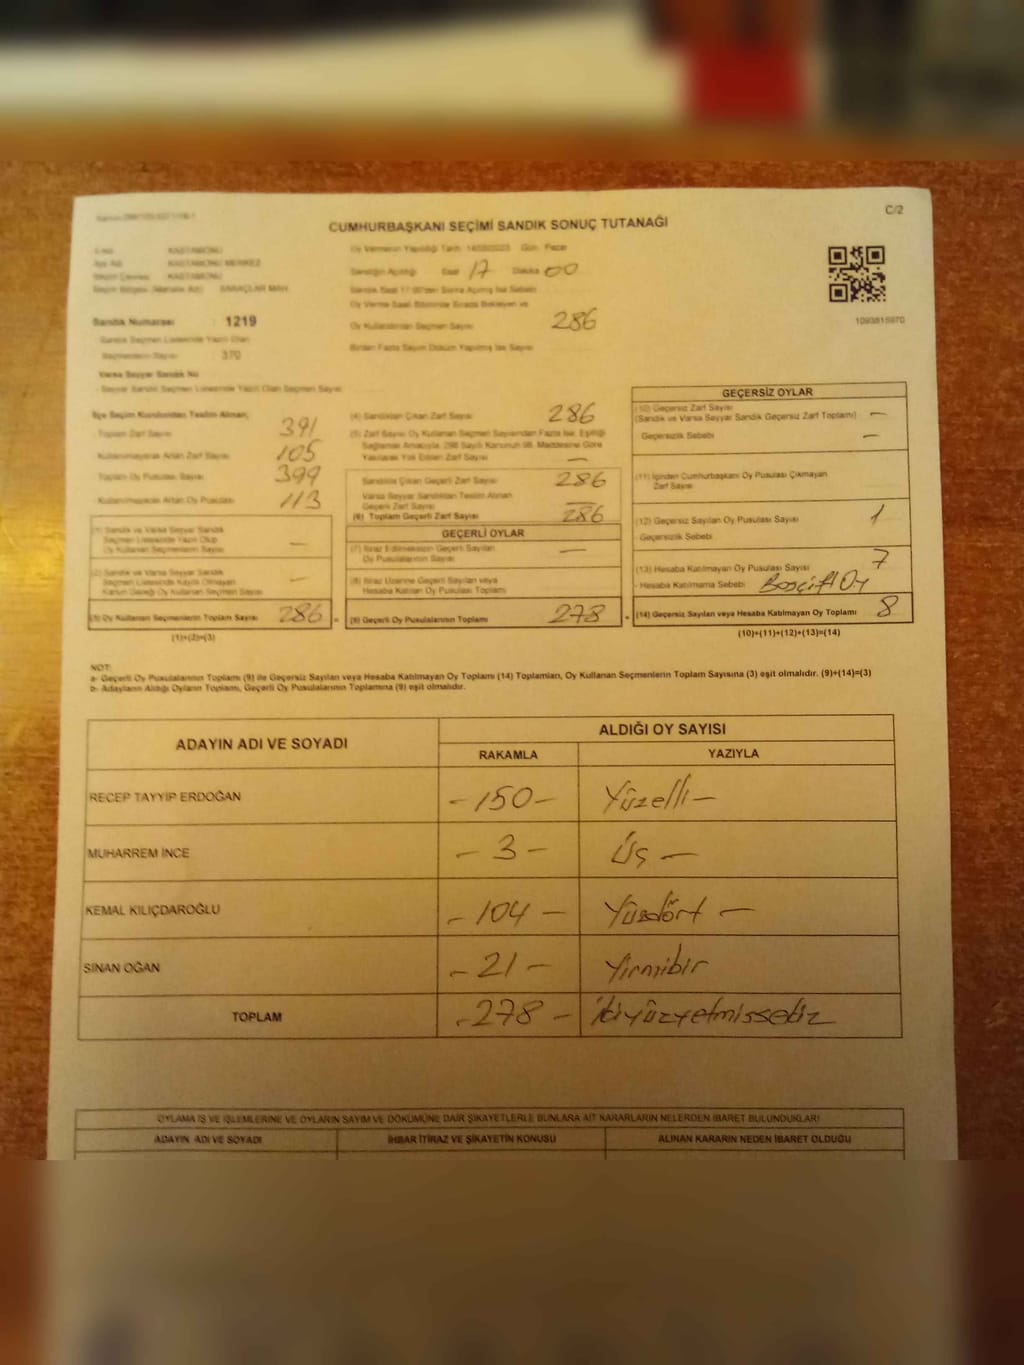 C/2
CUMHURBAŞKANI SEÇİMİ SANDIK SONUÇ TUTANAĞI
KASTAMONU
İlçe Adı KASTAMONU MERKEZ
Seçim Çevresi KASTAMONU
SARAÇLAR MAH.
Sandık Numarası : 1219
Sandık Seçmen Listesinde Yazılı Olan
Seçmenlerin Sayısı : 370
Varsa Seyyar Sandık No
Seyyar Sandık Seçmen Listesinde Yazılı Olan Seçmen Sayısı
Oy Vermenin Yapıldığı Tarih: 14/05/2023 Gün: Pazar
Sandığın Açıldığı Saat 17 Dakika 00
Sandık Saat 17.00'den Sonra Açılmış İse Sebebi
Oy Verme Saati Bitiminde Sırada Bekleyen ve
Oy Kullandırılan Seçmen Sayısı 286
Birden Fazla Sayım Döküm Yapılmış İse Sayısı
1093815970
İlçe Seçim Kurulundan Teslim Alınan;
- Toplam Zarf Sayısı 391
- Kullanılmayarak Artan Zarf Sayısı 105
- Toplam Oy Pusulası Sayısı 399
- Kullanılmayarak Artan Oy Pusulası 113
(1) Sandık ve Varsa Seyyar Sandık
Seçmen Listesinde Yazılı Olup
Oy Kullanan Seçmenlerin Sayısı —
(2) Sandık ve Varsa Seyyar Sandık
Seçmen Listesinde Kayıtlı Olmayan
Kanun Gereği Oy Kullanan Seçmen Sayısı —
(3) Oy Kullanan Seçmenlerin Toplam Sayısı 286 =
(1)+(2)=(3)
(4) Sandıktan Çıkan Zarf Sayısı 286
(5) Zarf Sayısı Oy Kullanan Seçmen Sayısından Fazla İse, Eşitliği
Sağlamak Amacıyla, 298 Sayılı Kanunun 98. Maddesine Göre
Yakılarak Yok Edilen Zarf Sayısı —
Sandıkta Çıkan Geçerli Zarf Sayısı 286
Varsa Seyyar Sandıktan Teslim Alınan
Geçerli Zarf Sayısı —
(6) Toplam Geçerli Zarf Sayısı 286
GEÇERLİ OYLAR
(7) İtiraz Edilmeksizin Geçerli Sayılan
Oy Pusulalarının Sayısı —
(8) İtiraz Üzerine Geçerli Sayılan veya
Hesaba Katılan Oy Pusulası Toplamı
(9) Geçerli Oy Pusulalarının Toplamı 278
GEÇERSİZ OYLAR
(10) Geçersiz Zarf Sayısı
(Sandık ve Varsa Seyyar Sandık Geçersiz Zarf Toplamı) —
Geçersizlik Sebebi —
(11) İçinden Cumhurbaşkanı Oy Pusulası Çıkmayan
Zarf Sayısı
(12) Geçersiz Sayılan Oy Pusulası Sayısı 1
-Geçersizlik Sebebi
(13) Hesaba Katılmayan Oy Pusulası Sayısı 7
- Hesaba Katılmama Sebebi Boşçift Oy
(14) Geçersiz Sayılan veya Hesaba Katılmayan Oy Toplamı 8
(10)+(11)+(12)+(13)=(14)
NOT:
a- Geçerli Oy Pusulalarının Toplamı (9) ile Geçersiz Sayılan veya Hesaba Katılmayan Oy Toplamı (14) Toplamları, Oy Kullanan Seçmenlerin Toplam Sayısına (3) eşit olmalıdır. (9)+(14)=(3)
b- Adayların Aldığı Oyların Toplamı, Geçerli Oy Pusulalarının Toplamına (9) eşit olmalıdır.
ADAYIN ADI VE SOYADI
ALDIĞI OY SAYISI
RAKAMLA YAZIYLA
RECEP TAYYİP ERDOĞAN -150- Yüzelli-
MUHARREM İNCE -3- Üç-
KEMAL KILIÇDAROĞLU -104- Yüzdört-
SİNAN OĞAN -21- Yirmibir
TOPLAM -278- ikiyüzyetmissekiz
OYLAMA İŞ VE İŞLEMLERİNE VE OYLARIN SAYIM VE DÖKÜMÜNE DAİR ŞİKAYETLERLE BUNLARA AİT KARARLARIN NELERDEN İBARET BULUNDUKLARI
ADAYIN ADI VE SOYADI İHBAR İTİRAZ VE ŞİKAYETİN KONUSU ALINAN KARARIN NEDEN İBARET OLDUĞU